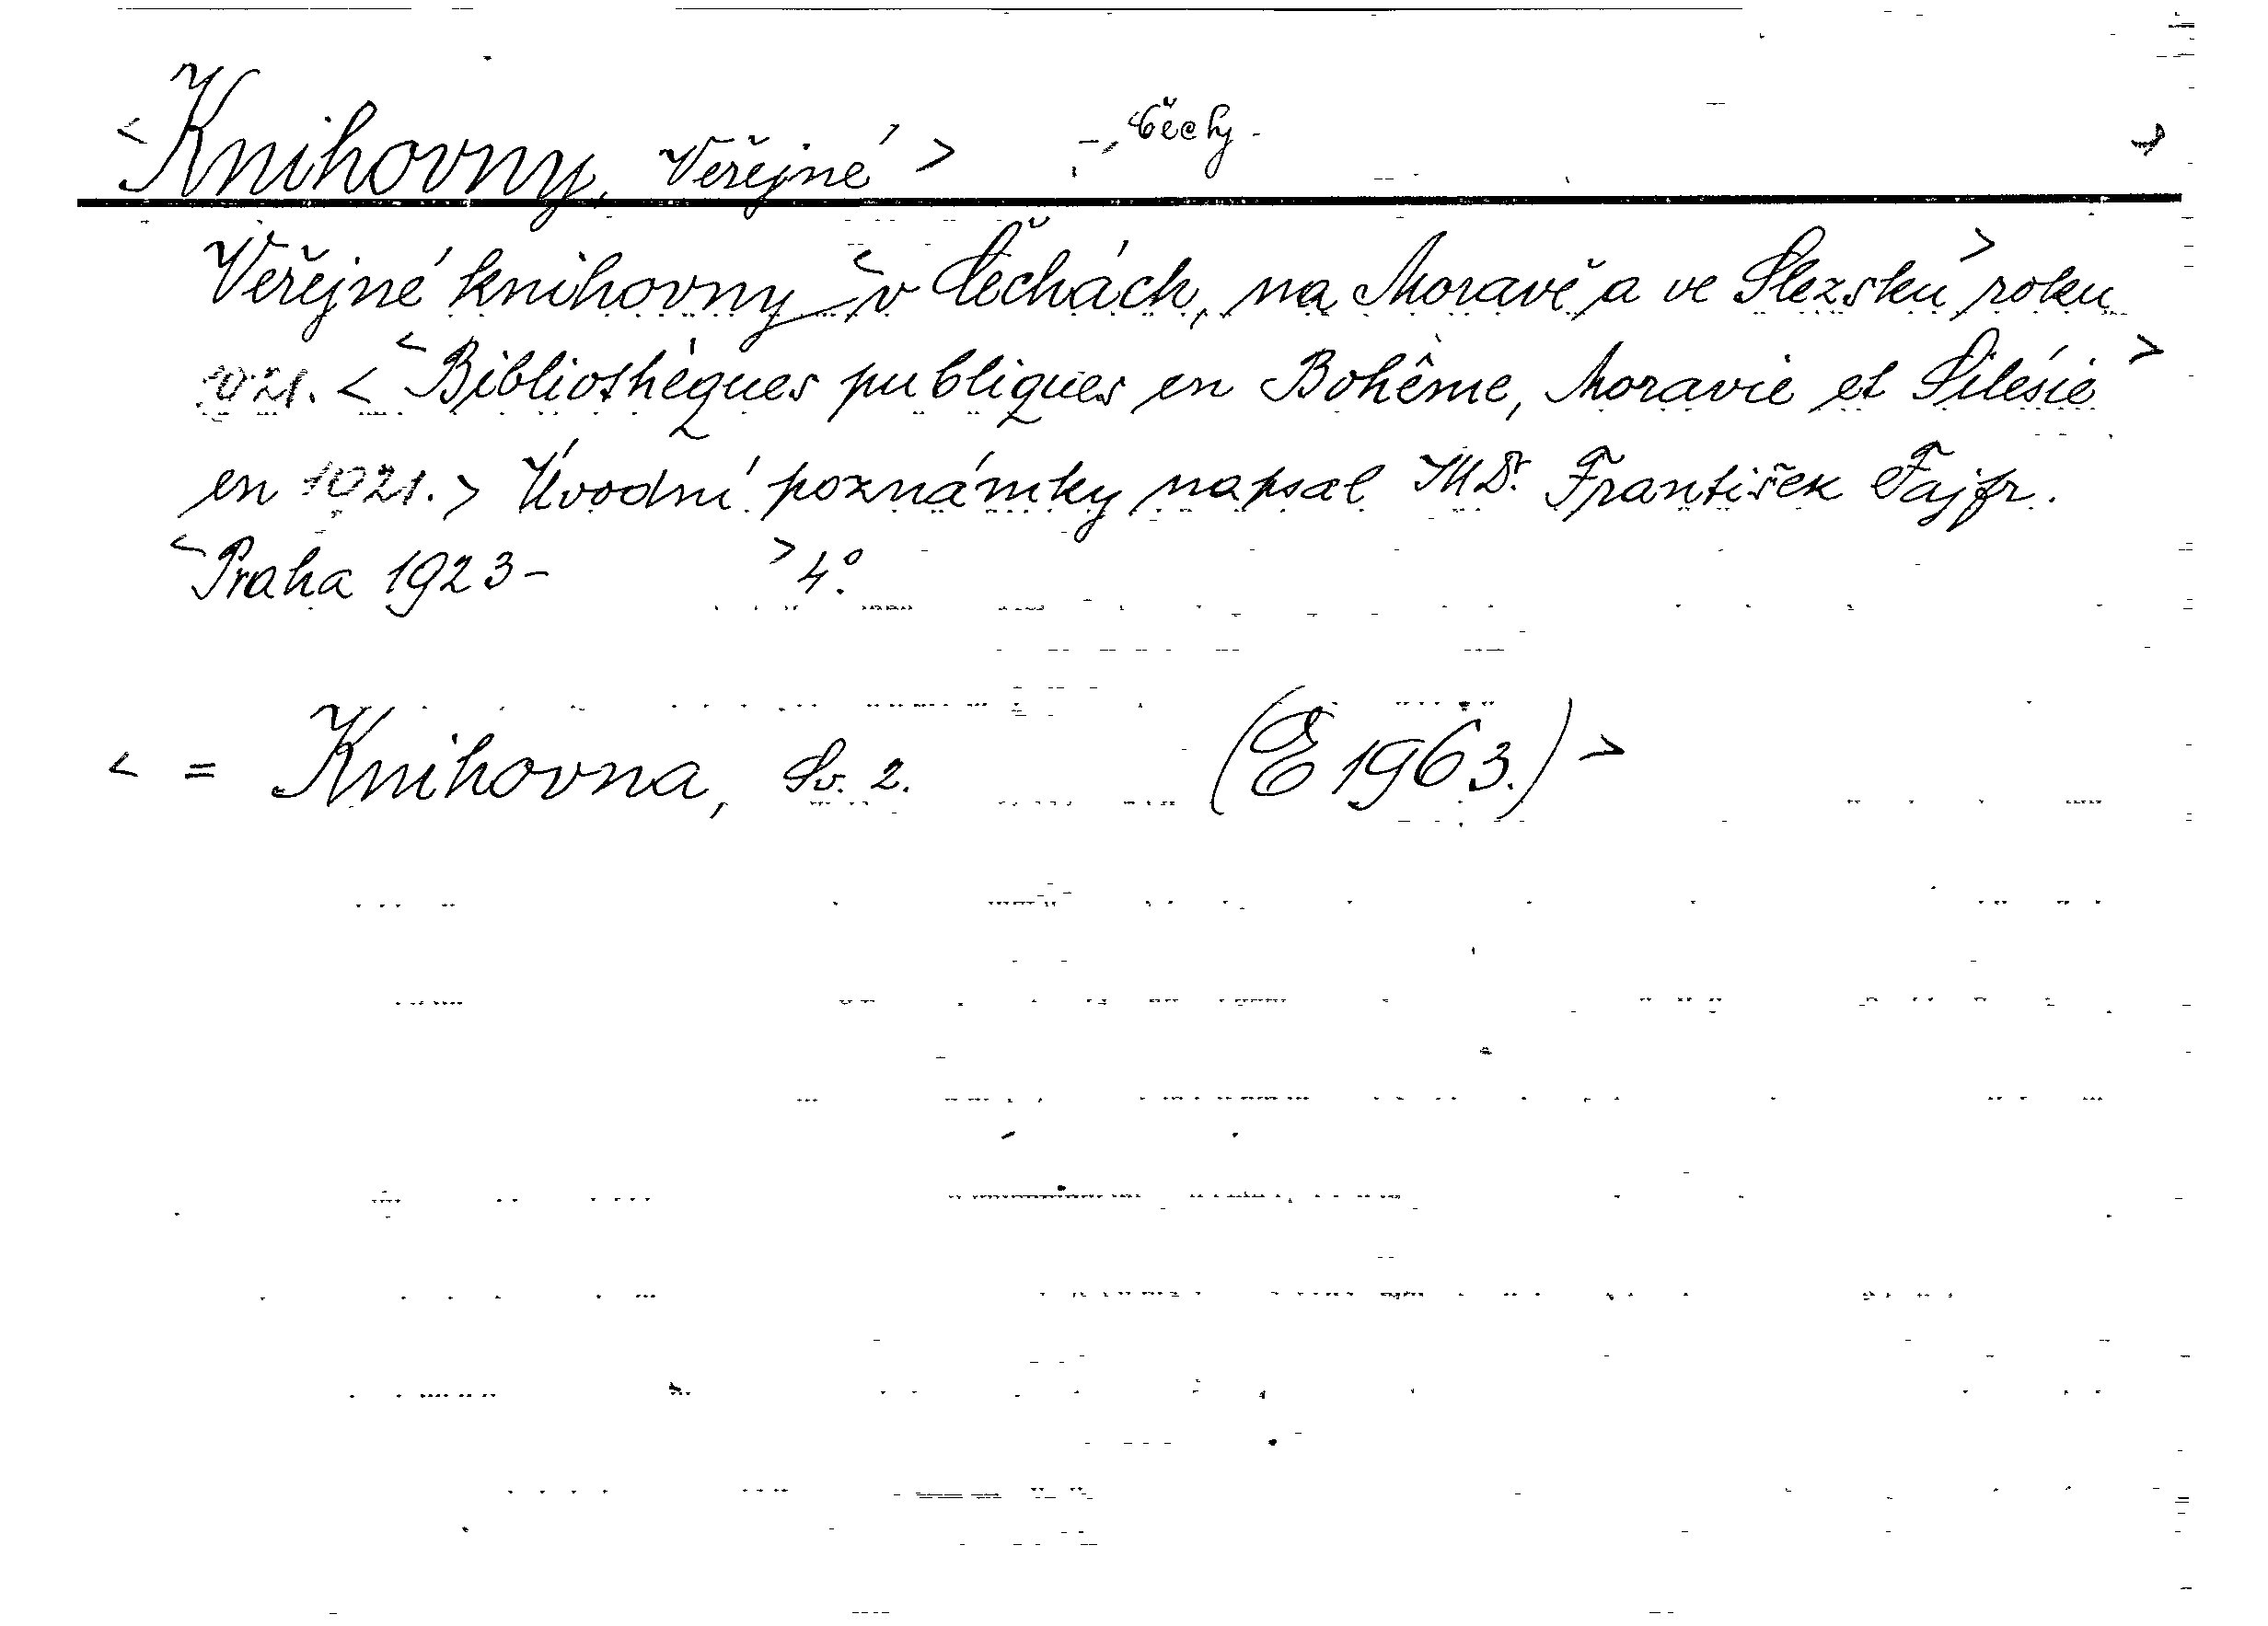 <Knihovny, Veřejné> -, Čechy -
Veřejné knihovny <v Čechách, na Moravě a ve Slezsku> roku
1921. < <Bibliothèques publiques en Bohême, Moravie et Silésie>
en 1921.> Úvodní poznámky napsal František Fajfr.
<Praha 1923- > 4°.
< = Knihovna, Sv. 2. (E 1963.) >